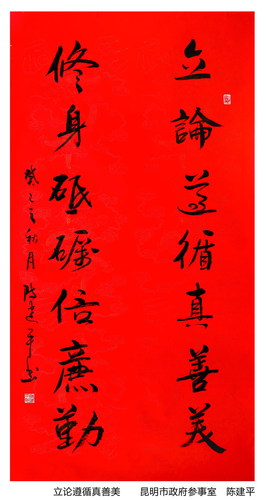 立論遵循真善美
修身砥礪倍廉勤
癸巳秋月 陈建平书
立论遵循真善美 昆明市政府参事室 陈建平